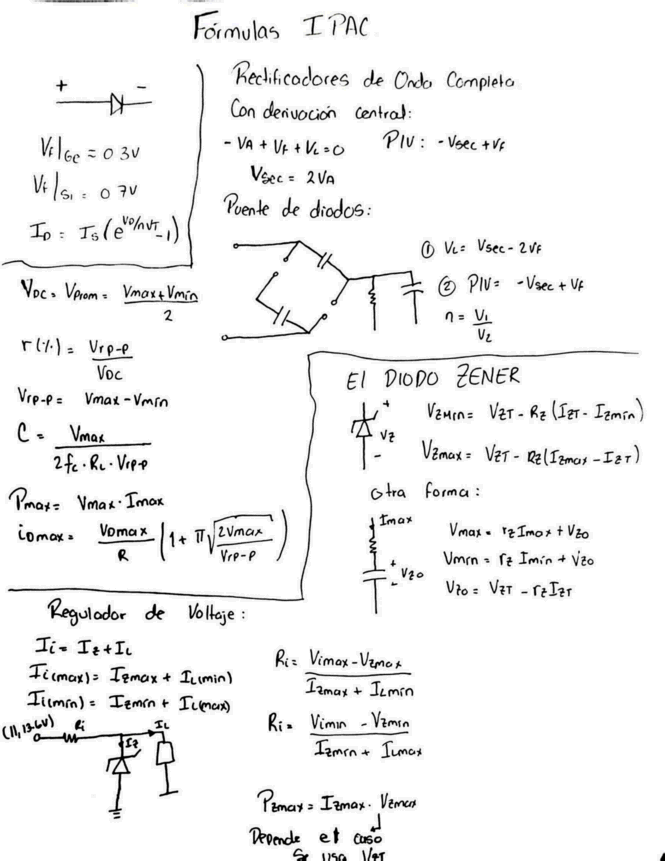 Fórmulas IPAC
+ -
Vf|Ge = 0 3V
Vf|Si = 0 7V
ID = IS(e^VD/nVT -1)
Rectificadores de Onda Completa
Con derivación central:
- VA + VF + VL = 0 PIV: -Vsec + VF
Vsec = 2VA
Puente de diodos:
① VL = Vsec - 2VF
② PIV = -Vsec + VF
n = V1/V2
VDC = VProm = Vmax + Vmin / 2
r(%) = Vrp-p / VDC
Vrp-p = Vmax - Vmin
C = Vmax / 2fc · RL · Vrp-p
Pmax = Vmax · Imax
iDmax = VDmax / R (1 + π√(2Vmax / Vrp-p))
El DIODO ZENER
+
VZ
-
VZMin = VZT - RZ(IZT - IZmin)
VZmax = VZT - RZ(IZmax - IZT)
Otra forma:
Imax
+
VZ0
-
Vmax = rZ Imax + VZ0
Vmin = rZ Imin + VZ0
VZ0 = VZT - rZ IZT
Regulador de Voltaje:
Ii = IZ + IL
Ii(max) = IZmax + IL(min)
Ii(min) = IZmin + IL(max)
(11, 13.6V) Ri IZ IL
Ri = Vimax - VZmax / IZmax + ILmin
Ri = Vimin - VZmin / IZmin + ILmax
PZmax = IZmax · VZmax
Depende el caso
Se usa VZT